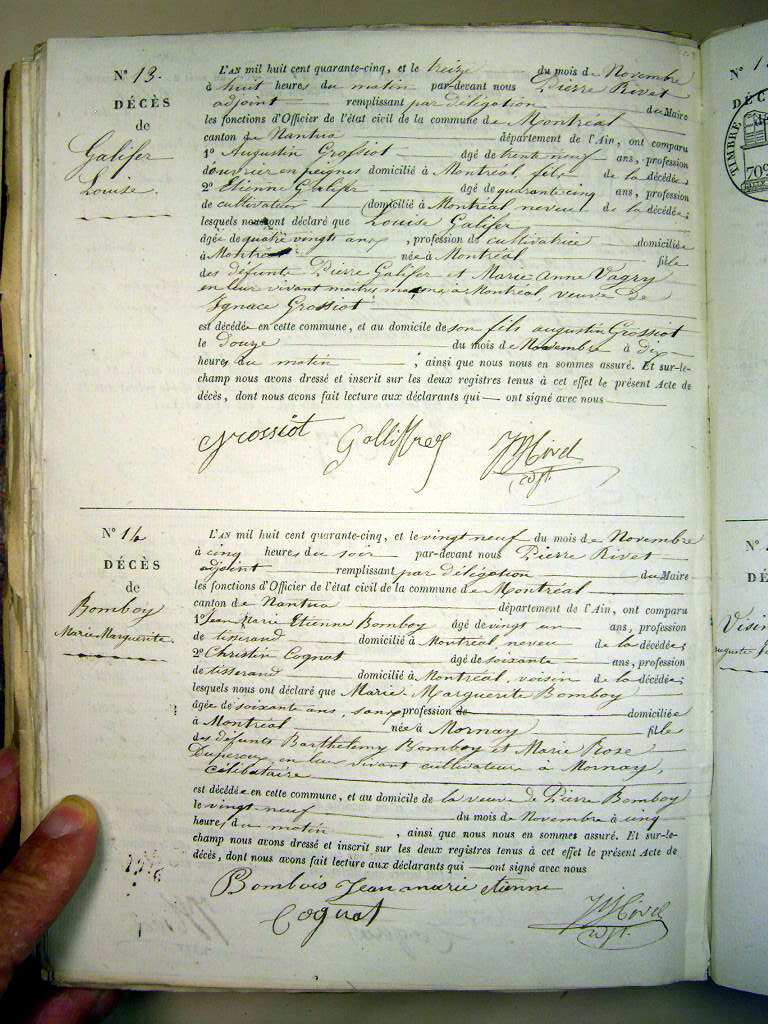 N° 13.
DÉCÈS
de
Galifer
Louise.
L'AN mil huit cent quarante-cinq, et le treize du mois de Novembre
à huit heures du matin par-devant nous Pierre Rivet
adjoint remplissant par délégation du Maire
les fonctions d'Officier de l'état civil de la commune de Montréal
canton de Nantua département de l'Ain, ont comparu
1° Augustin Grossiot âgé de trente neuf ans, profession
d'ouvrier en peignes domicilié à Montréal, fils de la décédée;
2° Etienne Galifer âgé de quarante cinq ans, profession
de cultivateur domicilié à Montréal neveu de la décédée;
lesquels nous ont déclaré que Louise Galifer
âgée de quatre vingts ans, profession de cultivatrice domiciliée
à Montréal née à Montréal fille
des défunts Pierre Galifer et Marie Anne Vagry
en leur vivant maitres à Montréal, veuve de
Ignace Grossiot
est décédée en cette commune, et au domicile de son fils augustin Grossiot
le douze du mois de Novembre à dix
heures du matin ; ainsi que nous nous en sommes assuré. Et sur-le-
champ nous avons dressé et inscrit sur les deux registres tenus à cet effet le présent Acte de
décès, dont nous avons fait lecture aux déclarants qui — ont signé avec nous
Grossiot Galliffrey
N° 14
DÉCÈS
de
Bomboy
Marie Marguerite.
L'AN mil huit cent quarante-cinq, et le vingt neuf du mois de Novembre
à cinq heures du soir par-devant nous Pierre Rivet
adjoint remplissant par délégation du Maire
les fonctions d'Officier de l'état civil de la commune de Montréal
canton de Nantua département de l'Ain, ont comparu
1° Jean Marie Etienne Bomboy âgé de vingt un ans, profession
de tisserand domicilié à Montréal, neveu de la décédée;
2° Christin Cognat âgé de soixante ans, profession
de tisserand domicilié à Montréal, voisin de la décédée;
lesquels nous ont déclaré que Marie Marguerite Bomboy
âgée de soixante ans, sans profession de domiciliée
à Montréal née à Mornay fille
des défunts Barthélemy Bomboy et Marie Rose
Duperoux en leur vivant cultivateurs à Mornay,
célibataire
est décédée en cette commune, et au domicile de la veuve de Pierre Bomboy
le vingt neuf du mois de Novembre à cinq
heures du matin , ainsi que nous nous en sommes assuré. Et sur-le-
champ nous avons dressé et inscrit sur les deux registres tenus à cet effet le présent Acte de
décès, dont nous avons fait lecture aux déclarants qui — ont signé avec nous
Bombois Jean marie etienne
Coguat
N°
DÉC
TIMBRE
N°
DÉ